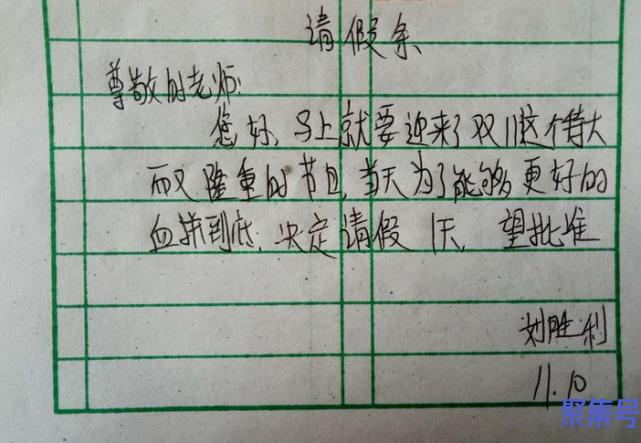 请假条
尊敬的老师:
您好,马上就要迎来了双11这个特大
而又隆重的节日,当天为了能够更好的
血拼到底,决定请假1天,望批准
刘胜利
11.10
聚集号